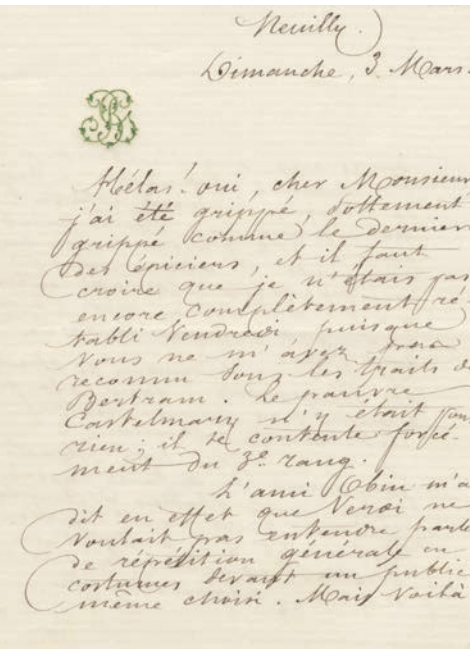 Neuilly.
Dimanche, 3 Mars.
Hélas! oui, cher Monsieur
j'ai été grippé, sottement
grippé comme le dernier
des épiciers, et il faut
croire que je n'étais pas
encore complètement ré-
tabli Vendredi puisque
Vous ne m'avez pas
reconnu sous les traits de
Bertram. Le pauvre
Castelmary n'y était pour
rien; il se contente forcé-
ment du 3e rang.
L'ami Obin m'a
dit en effet que Verdi ne
voulait pas entendre parler
de répétition générale en
costumes devant un public
même choisi. Mais voilà